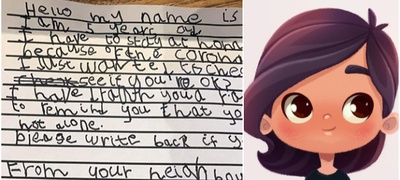 Hello my name is
I am 5 years old
I have to stay at home
because of a corona
I just want to
see if you're ok?
I have faith you'd
to remind you that yo
not alone.
please write back if y
From your neighbou